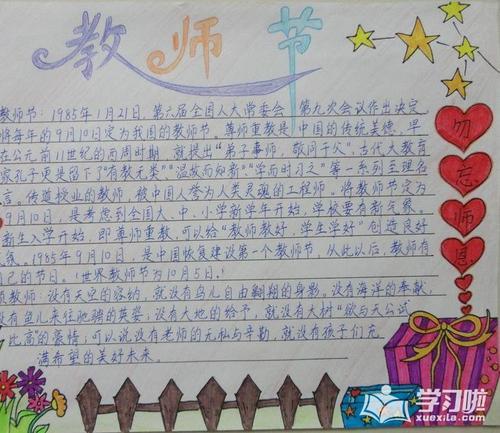 教师节
教师节：1985年1月21日，第六届全国人大常委会 第九次会议作出决定，
将每年的9月10日定为我国的教师节。尊师重教是中国的传统美德，早
在公元前11世纪的西周时期，就提出"弟子事师，敬同于父"。古代大教育
家孔子更是留下"有教无类""温故而知新""学而时习之"等一系列至理名
言。传道授业的教师，被中国人誉为人类灵魂的工程师。将教师节定为
9月10日，是考虑到全国大、中、小学新学年开始，学校要有新气象。
新生入学开始，即尊师重教，可以给"教师教好，学生学好"创造良好
气氛。1985年9月10日，是中国恢复建设第一个教师节，从此以后，教师有
自己的节日。（世界教师节为10月5日。）
教师：没有天空的容纳，就没有鸟儿自由翱翔的身影。没有海洋的奉献，
没有鱼儿来往驰骋的英姿；没有大地的给予，就没有大树"欲与天公试
比高"的豪情；可以说没有老师的无私与辛勤，就没有孩子们充
满希望的美好未来。
勿
忘
师
恩
学习啦
xuexila.com